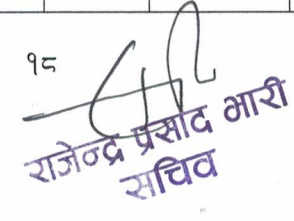 १८
राजेन्द्र प्रसाद भारी
सचिव